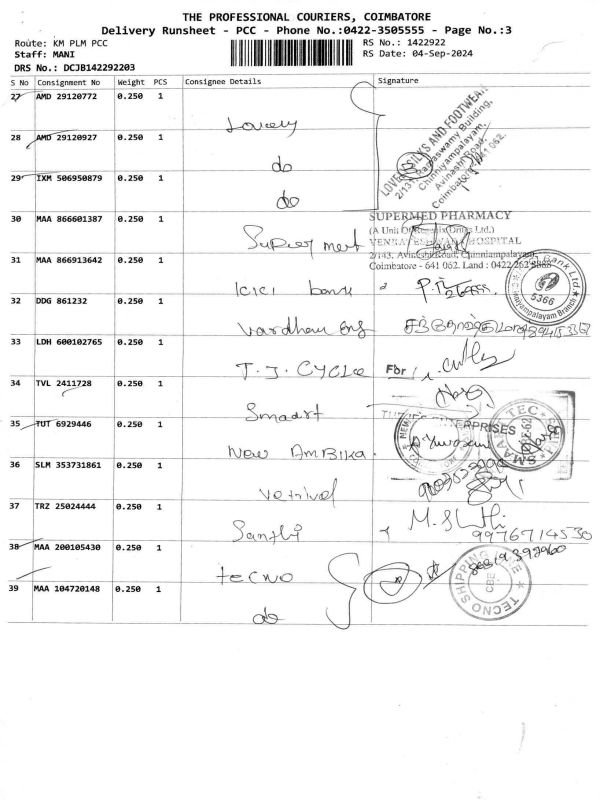 THE PROFESSIONAL COURIERS, COIMBATORE
Delivery Runsheet - PCC - Phone No.:0422-3505555 - Page No.:3
Route: KM PLM PCC
RS No.: 1422922
Staff: MANI
RS Date: 04-Sep-2024
DRS No.: DCJB142292203
S No Consignment No Weight PCS Consignee Details Signature
27 AMD 29120772 0.250 1 Lovely
28 AMD 29120927 0.250 1 do
29 IXM 506950879 0.250 1 do
LOVELY SILKS AND FOOTWEAR
2/131, Ramaswamy Building,
Chinniyampalayam,
Avinashi Road,
Coimbatore - 641 062.
30 MAA 866601387 0.250 1 Super met
SUPERMED PHARMACY
(A Unit Of
HOSPITAL
2/143, Avinashi Road, Chinniampalayam,
Coimbatore - 641 062. Land : 0422
31 MAA 866913642 0.250 1 icici bank
Bank Ltd.
5366
Branch
32 DDG 861232 0.250 1 Vardhan Eng
33 LDH 600102765 0.250 1 T.I. CYCLE
For
34 TVL 2411728 0.250 1 Smaart
SMAART TEC
35 TUT 6929446 0.250 1 New AMBIKA
ENTERPRISES
36 SLM 353731861 0.250 1 Vetrivel
37 TRZ 25024444 0.250 1 Santhi
9976714530
38 MAA 200105430 0.250 1 tecno
39 MAA 104720148 0.250 1 do
TECNO SHIPPING
CBE